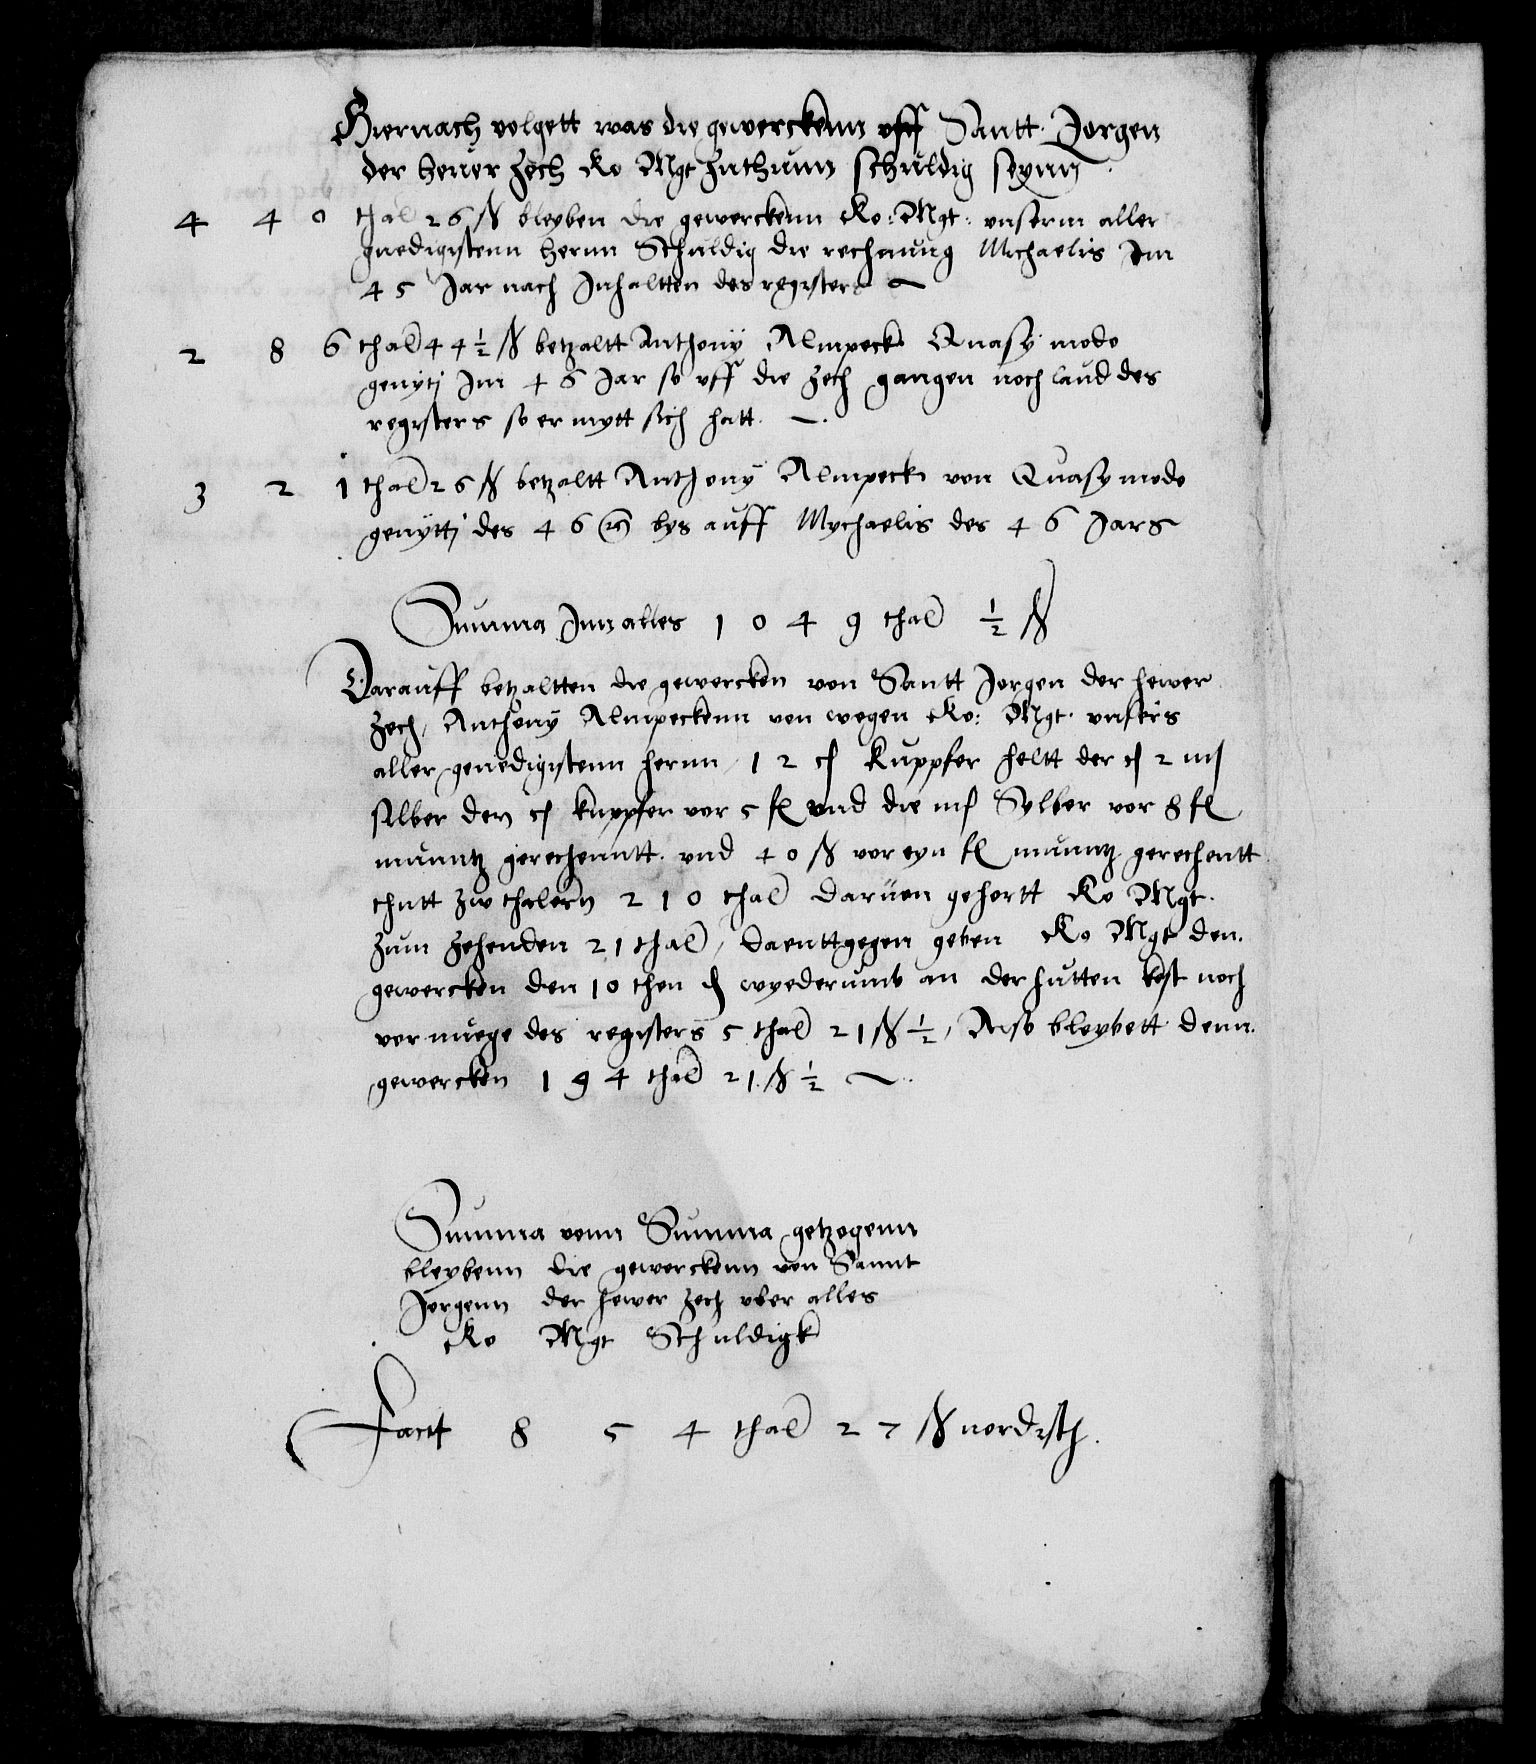 Hiernach volgett was die gewerckenn vff Santt Jorgen
der hewer zech Ko Mgt zuthunn schuldig seynn
4 4 0 thal 26 ß bleyben die gewerckenn Ko: Mgt: vnserm aller
gnedigistenn hernn Schuldig die rechnung Michaelis Im
45 Jar nach Inhaltten des registers
2 8 6 thal 44 ½ ß betzaltt Anthony Almpeck Quasy modo
genyti Im 46 Jar so vff die zech gangen noch laud des
registers so er mytt sich hatt
3 2 1 thal 26 ß betzaltt Anthony Almpeck von Quasymodo
genytti des 46 bys auff Mychaelis des 46 Jars
Summa Inn alles 1 0 4 9 thal ½ ß
Darauff betzaltten die gewercken von Santt Jorgen der hewer
zech, Anthony Almpeckenn von wegen Ko: Mgt. vnsers
aller genedigistenn hernn, 12 Kuppfer heltt der 2
silber den kuppfer vor 5 fl vnd die Sylber vor 8 fl
muuntz gerechenntt. vnd 40 ß vor eyn fl muuntz gerechentt
thutt zw thalern 210 thal daruon gehortt Ko Mgt.
zum zehenden 21 thal, daenttgegen geben Ko Mgt den.
gewercken den 10 then wyederumb an der hutten kost noch
vor muege des registers 5 thal 21 ß ½, Also bleybett denn.
gewercken 194 thal 21 ß ½
Summa vonn Summa getzogenn
bleybenn die gewerckenn von Sannt
Jorgenn der hewer zech vber alles
Ko Mgt Schuldigk
Facit 8 5 4 thal 27 ß nordisch.